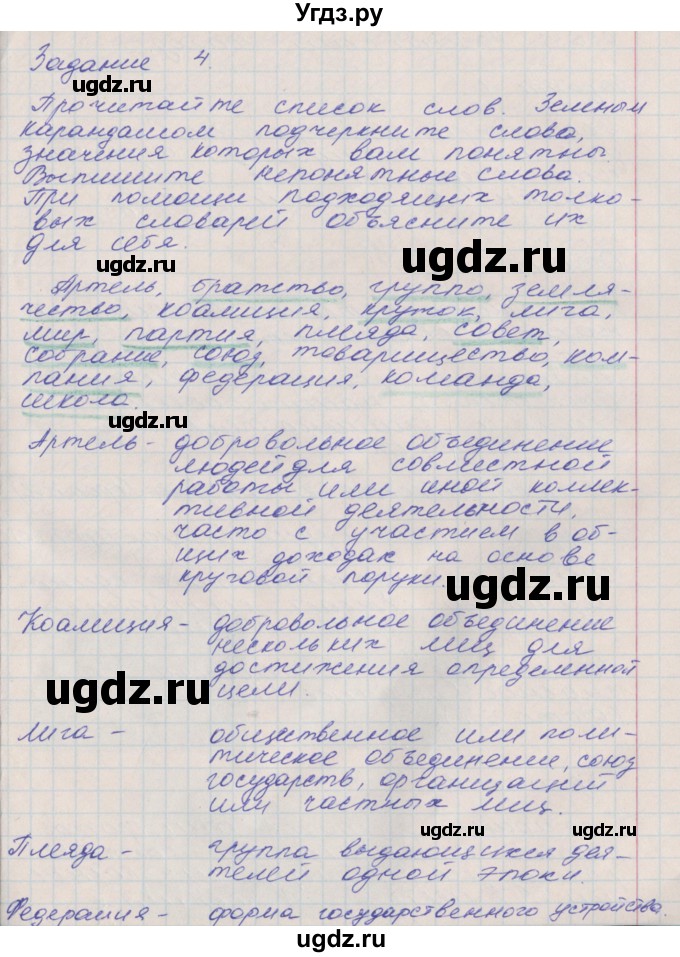 Угдз.ру
Задание 4.
ugdz.ru
Прочитайте список слов. Зеленым
карандашом подчеркните слова,
значения которых вам понятны.
Выпишите непонятные слова.
При помощи подходящих толко-
вых словарей объясните их
для себя.
ugdz.ru
ugdz.ru
Артель, братство, группа, земля-
чество, коалиция, кружок, лига,
мир, партия, плеяда, совет,
собрание, союз, товарищество, ком-
пания, федерация, команда,
школа.
ugdz.ru
Артель - добровольное объединение
людей для совместной
работы или иной коллек-
тивной деятельности,
часто с участием в об-
щих доходах на основе
круговой поруки.
ugdz.ru
Коалиция - добровольное объединение
нескольких лиц для
достижения определенной
цели.
ugdz.ru
Лига - общественное или поли-
тическое объединение, союз
государств, организаций
или частных лиц.
ugdz.ru
ugdz.ru
Плеяда - группа выдающихся дея-
телей одной эпохи.
Федерация - форма государственного устройства.
ugdz.ru